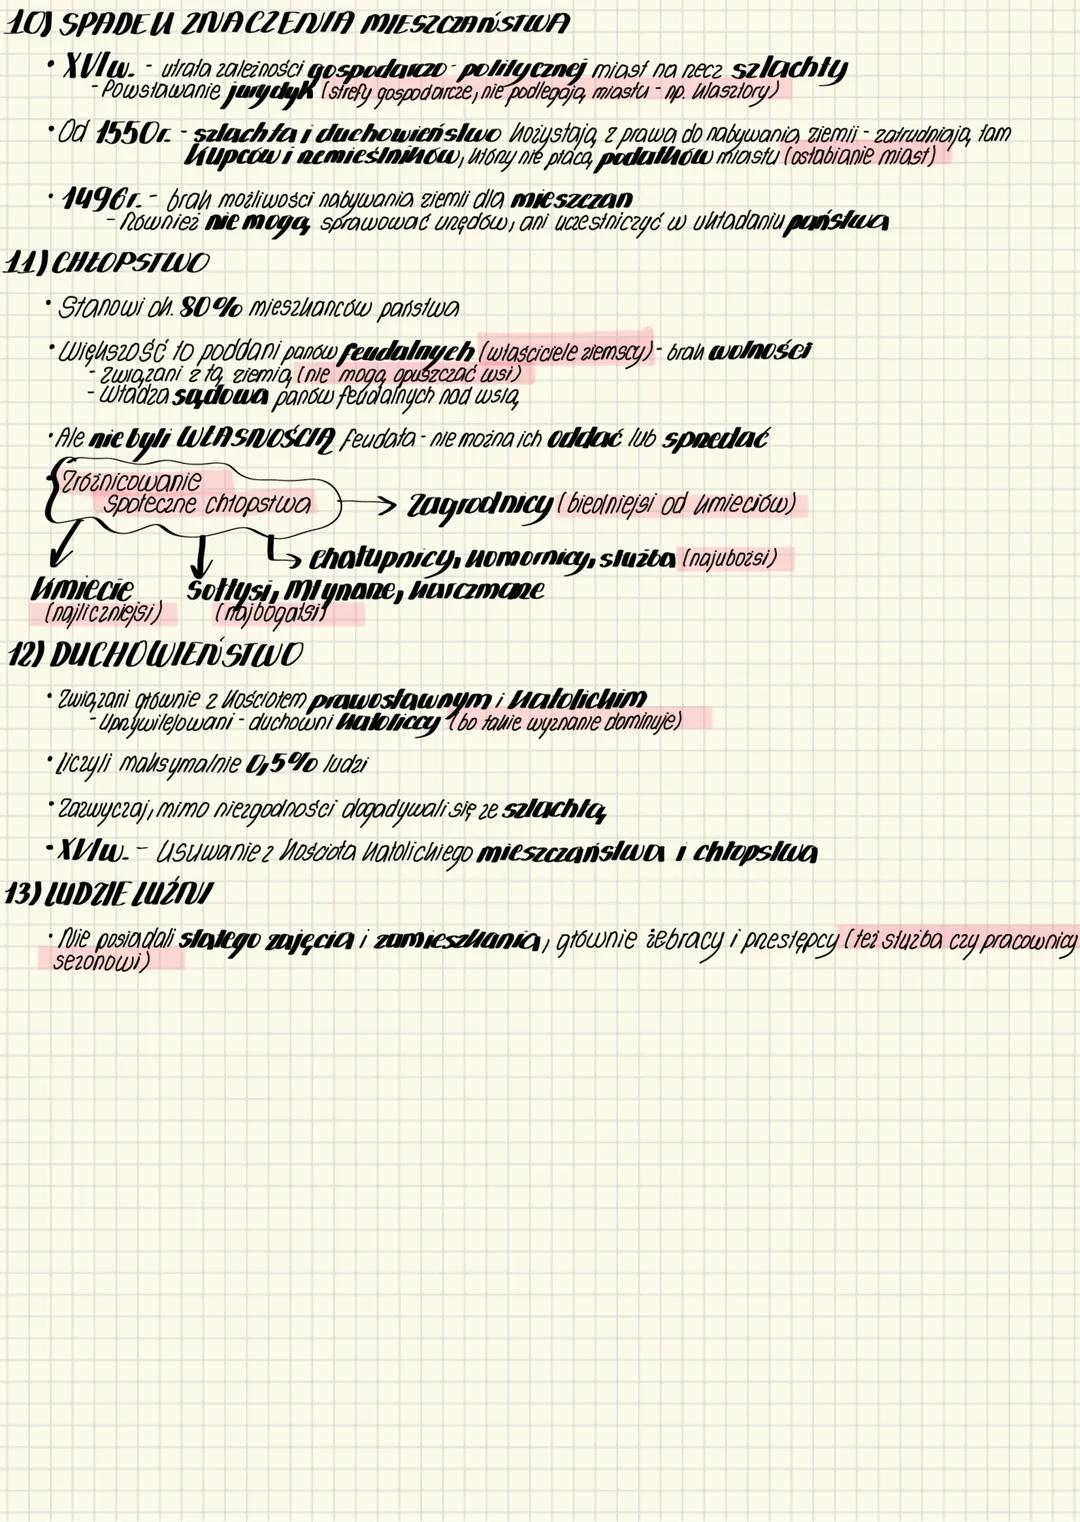 10) SPADEK ZNACZENIA MIESZCZAŃSTWA
• XVIw. - utrata zależności gospodarczo-politycznej miast na rzecz szlachty
- Powstawanie jurydyk (strefy gospodarcze, nie podlegają miastu - np. klasztory)
• Od 1550r. - szlachta i duchowieństwo kożystają z prawa do nabywania ziemii - zatrudniają tam
kupców i rzemieślników, który nie płacą podatków miastu (osłabianie miast)
• 1496r. - brak możliwości nabywania ziemii dla mieszczan
- Również nie mogą sprawować urzędów, ani uczestniczyć w układaniu państwa
11) CHŁOPSTWO
• Stanowi ok. 80% mieszkańców państwa
• Większość to poddani panów feudalnych (właściciele ziemscy) - brak wolności
- Związani z tą ziemią (nie mogą opuszczać wsi)
- Władza sądowa panów feudalnych nad wsią
• Ale nie byli WŁASNOŚCIĄ feudała - nie można ich oddać lub sprzedać
Zróżnicowanie
Społeczne chłopstwa
Zagrodnicy (biedniejsi od kmieciów)
Chałupnicy, komornicy, służba (najubożsi)
Kmiecie
(najliczniejsi)
Sołtysi, Młynarze, karczmarze
(najbogatsi)
12) DUCHOWIEŃSTWO
• Związani głównie z kościołem prawosławnym i katolickim
- Uprzywilejowani - duchowni katoliccy (bo takie wyznanie dominuje)
• Liczyli maksymalnie 0,5% ludzi
• Zazwyczaj, mimo niezgodności dogadywali się ze szlachtą
• XVIw. - Usuwanie z kościoła katolickiego mieszczaństwa i chłopstwa
13) LUDZIE LUŹNI
• Nie posiadali stałego zajęcia i zamieszkania, głównie żebracy i przestępcy (też służba czy pracownicy
sezonowi)